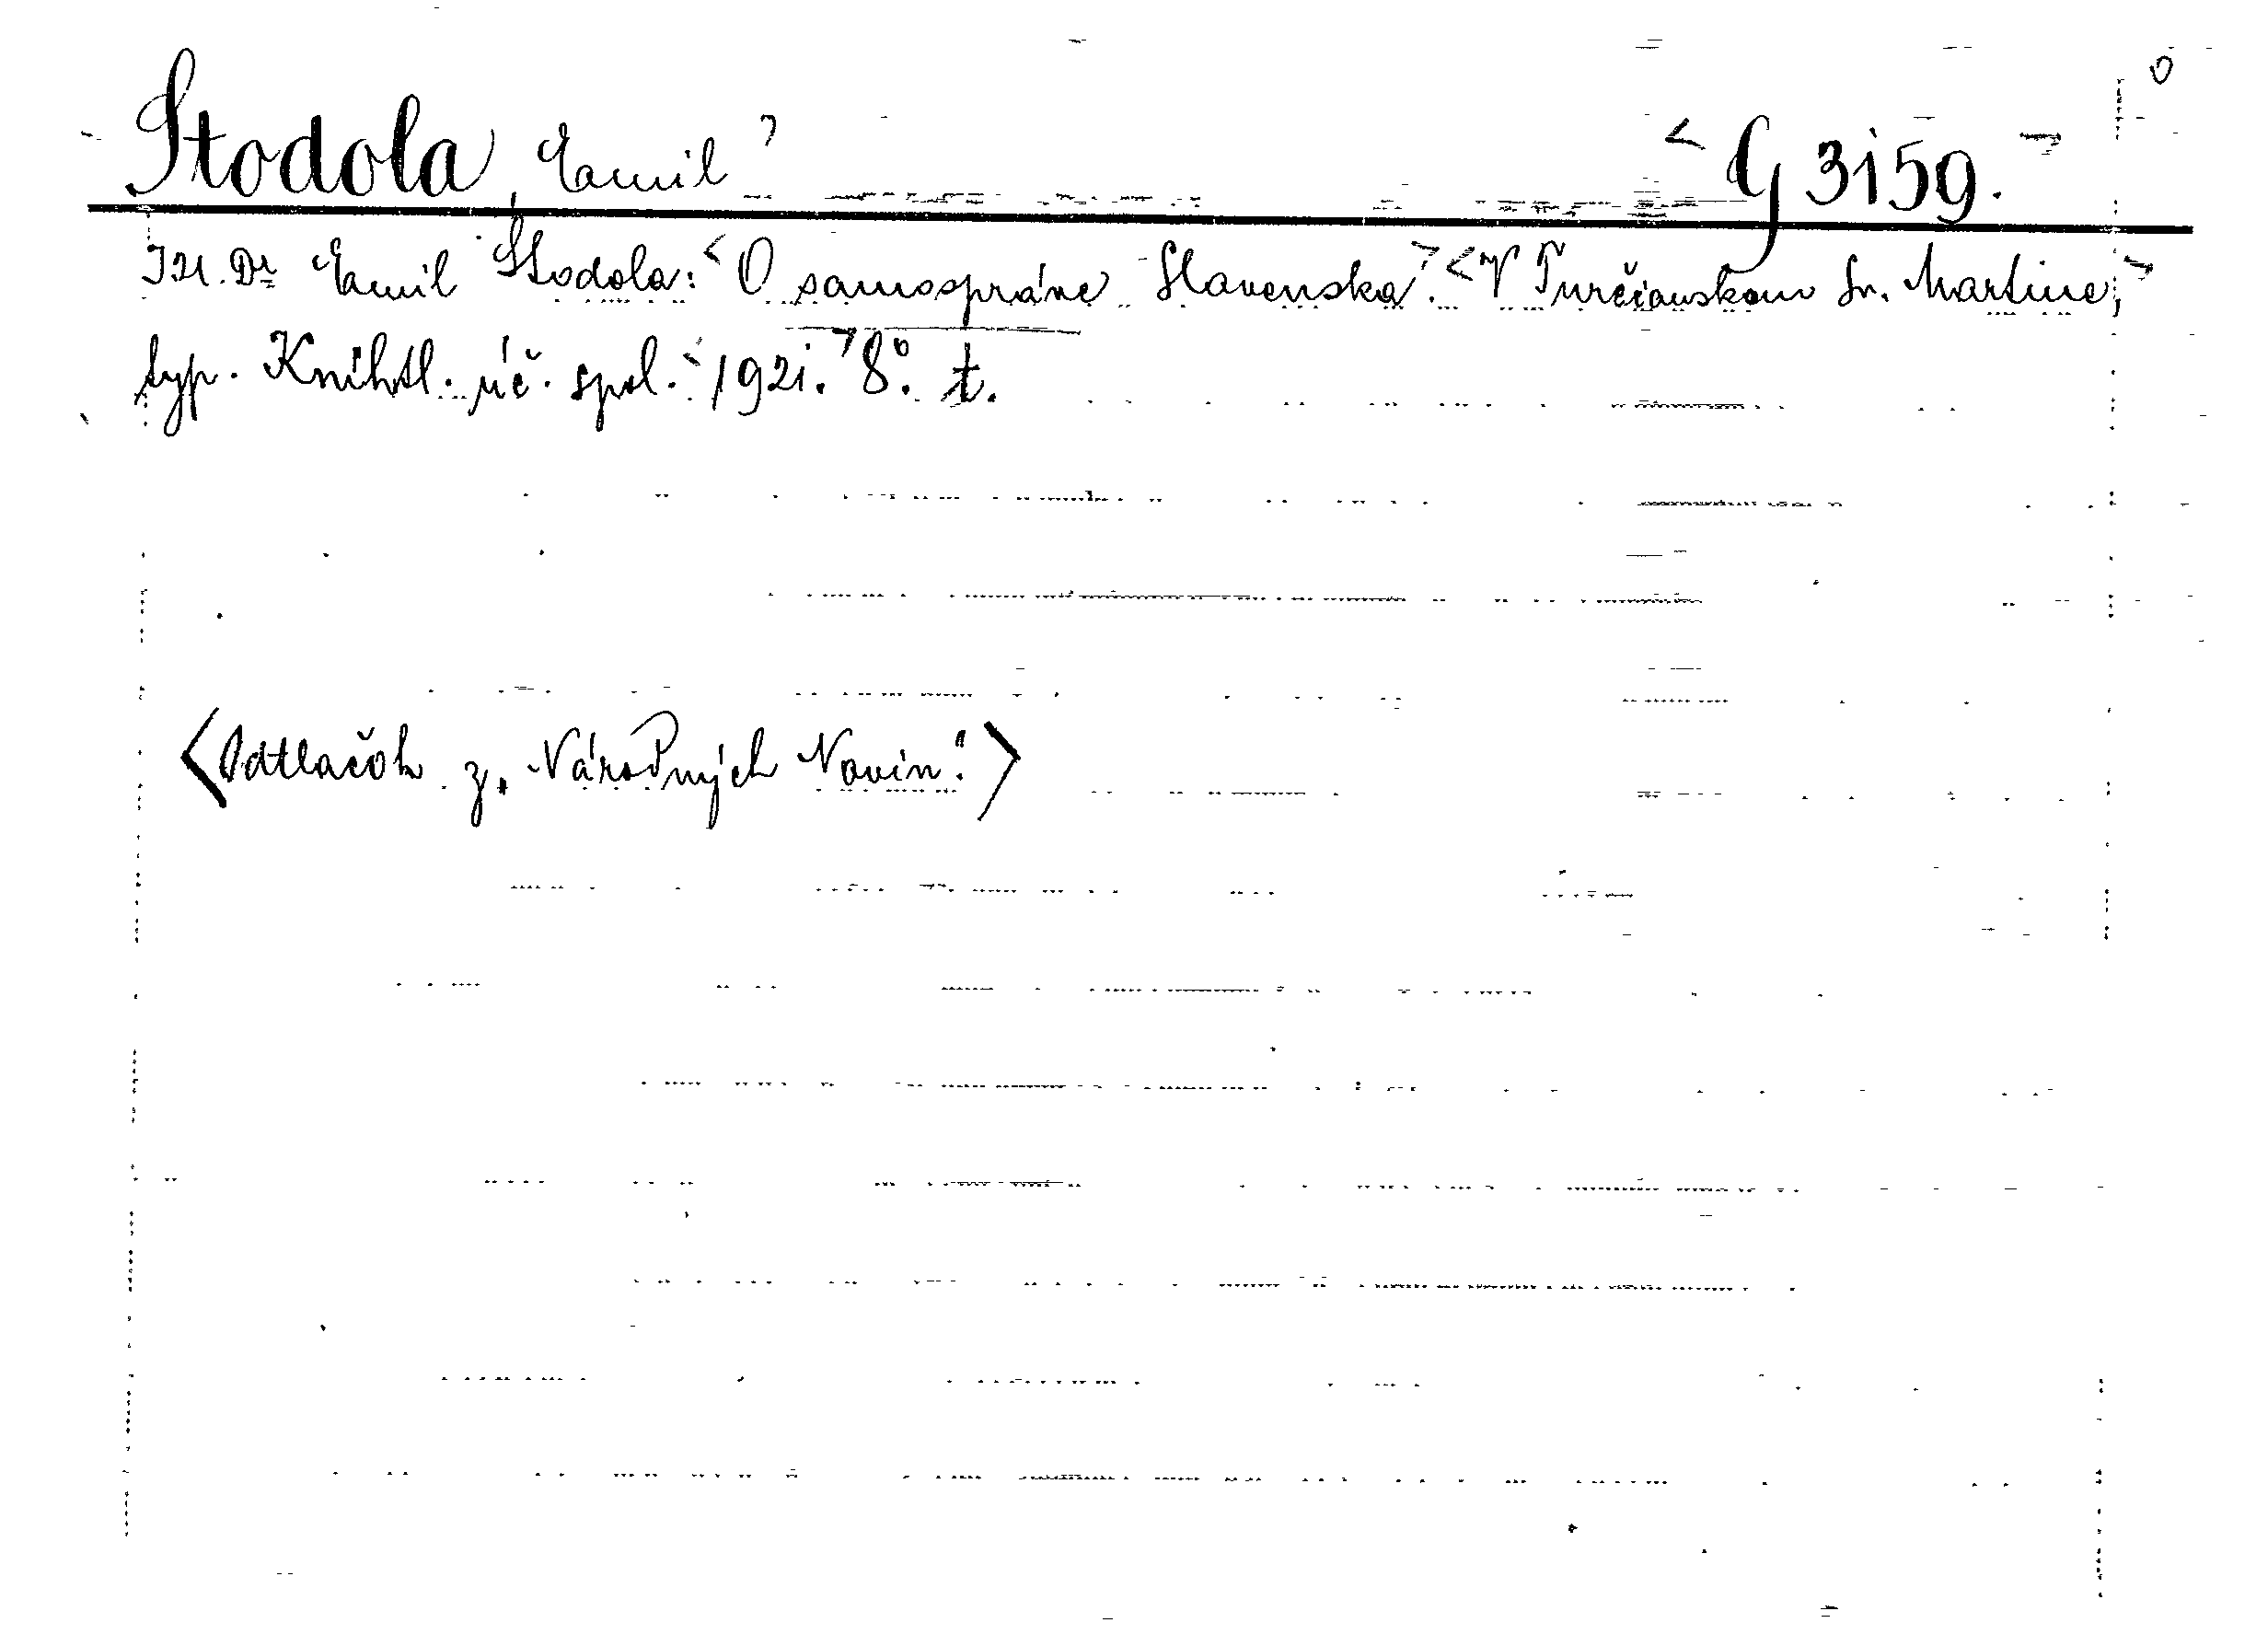 Stodola, Emil G 3159.
JU. Dr Emil Stodola: O samospráve Slovenska. V Turčianskom Sv. Martine,
typ. Kníhtl. úč. spol. 1921. 8°. t.
<Odtlačok z „Národných Novín“.>